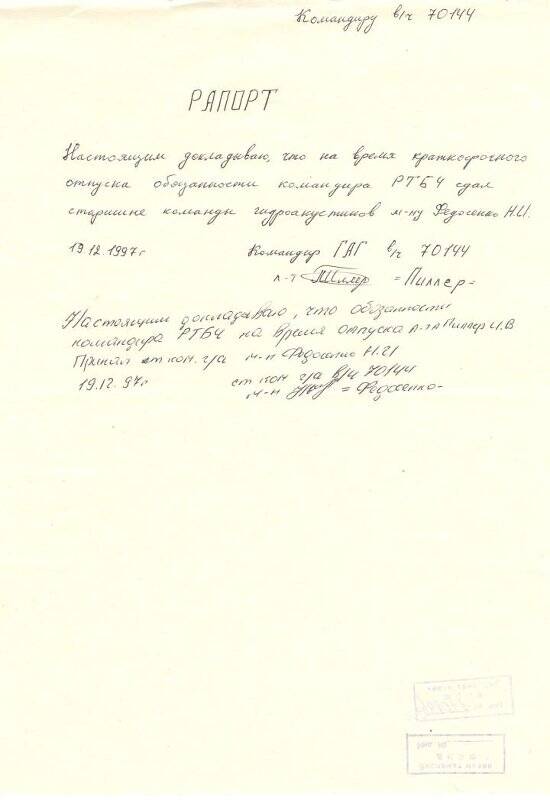 Командиру в/ч 70144
РАПОРТ
Настоящим докладываю, что на время краткосрочного
отпуска обязанности командира РТБЧ сдал
старшине команды гидроакустиков м-ну Федосенко Н.И.
19.12.1997г Командир ГАГ в/ч 70144
л-т =Пиллер=
Настоящим докладываю, что обязанности
командира РТБЧ на время отпуска л-та Пиллер И.В
Принял ст ком. г/а м-н Федосенко Н.И
19.12.97г ст ком г/а в/ч 70144
м-н =Федосенко-